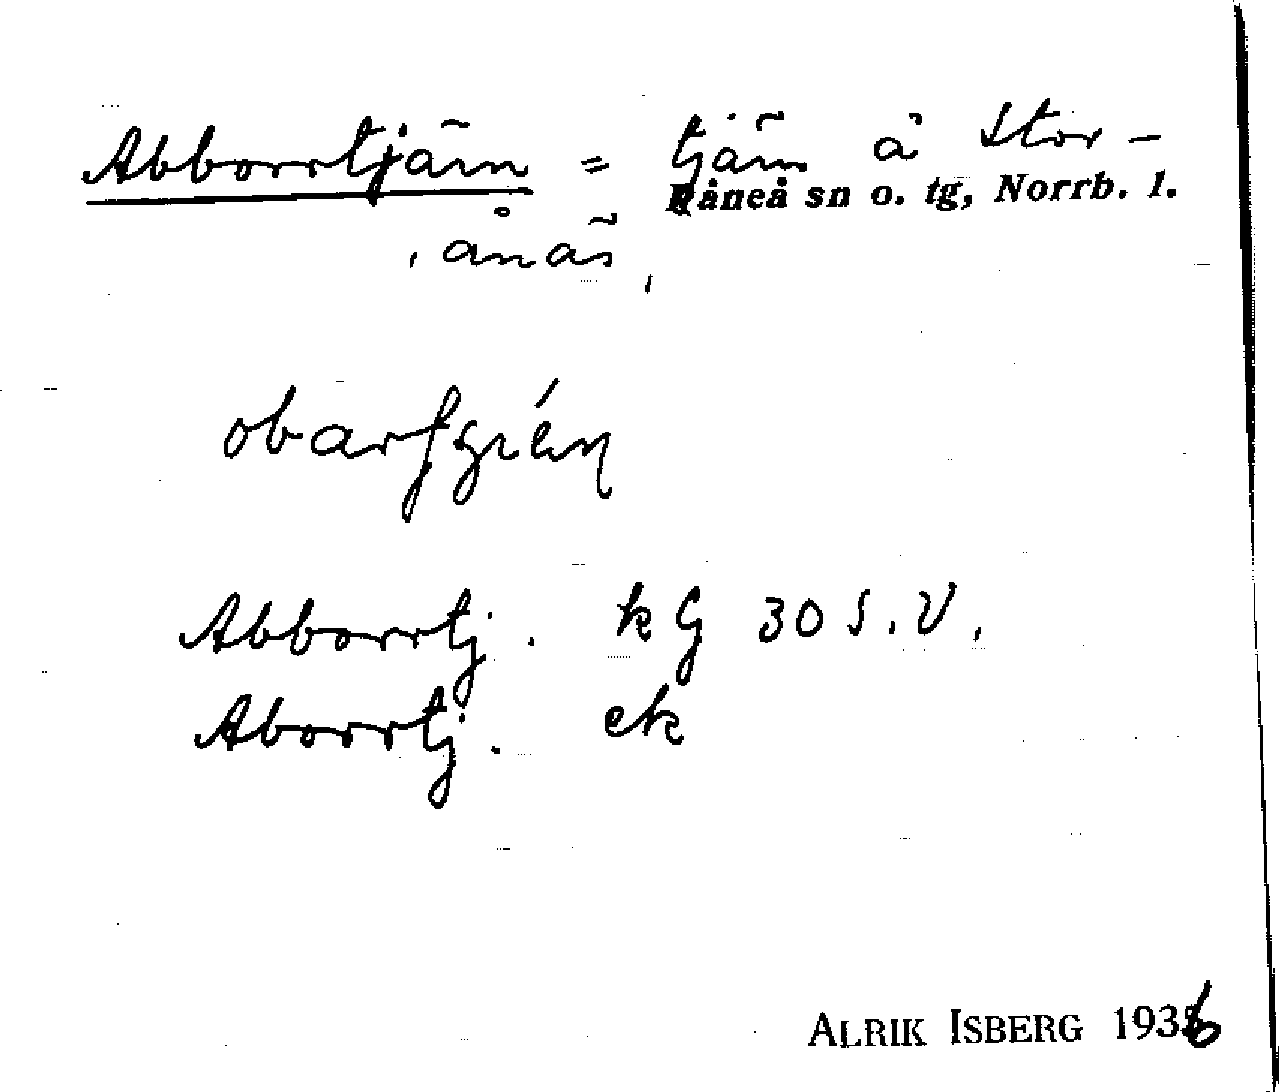 Abborrtjärn = tjärn å Stor-
Råneå sn o. tg, Norrb. l.
ånäs
Abborrtj. kG 30 S.V.
Aborrtj. ek
ALRIK ISBERG 1936